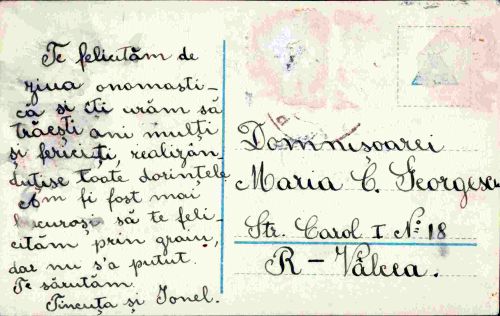 Te felicităm de
ziua onomasti-
că și îți urăm să
trăești ani mulți
și fericiți, realizân-
duțise toate dorințele
Am fi fost mai
bucuroși să te feli-
cităm prin graiu,
dar nu s'a putut.
Te sărutăm
Tincuța și Ionel.
Domnișoarei
Maria C. Georgescu
Str. Carol I No 18
R - Vâlcea.